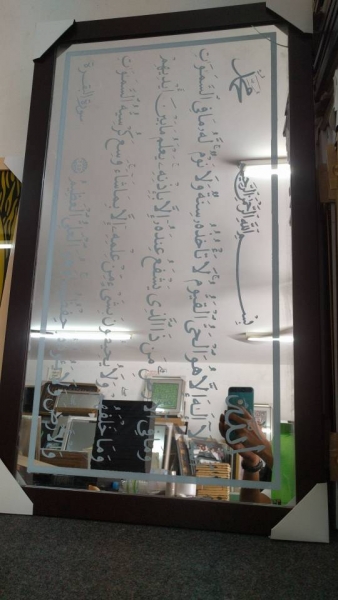 الله بِسْمِ اللهِ الرَّحْمٰنِ الرَّحِيمِ مُحَمَّد
لَا إِلَٰهَ إِلَّا هُوَ الْحَيُّ الْقَيُّومُ لَا تَأْخُذُهُ سِنَةٌ وَلَا نَوْمٌ لَهُ مَا فِي السَّمَٰوَٰتِ
وَمَا فِي مَنْ ذَا الَّذِي يَشْفَعُ عِنْدَهُ إِلَّا بِإِذْنِهِ يَعْلَمُ مَا بَيْنَ أَيْدِيهِمْ
وَمَا خَلْفَهُمْ وَلَا يُحِيطُونَ بِشَيْءٍ مِنْ عِلْمِهِ إِلَّا بِمَا شَاءَ وَسِعَ كُرْسِيُّهُ السَّمَٰوَٰتِ
وَالْأَرْضَ وَلَا حِفْظُهُمَا الْعَلِيُّ الْعَظِيمُ سورة البقرة